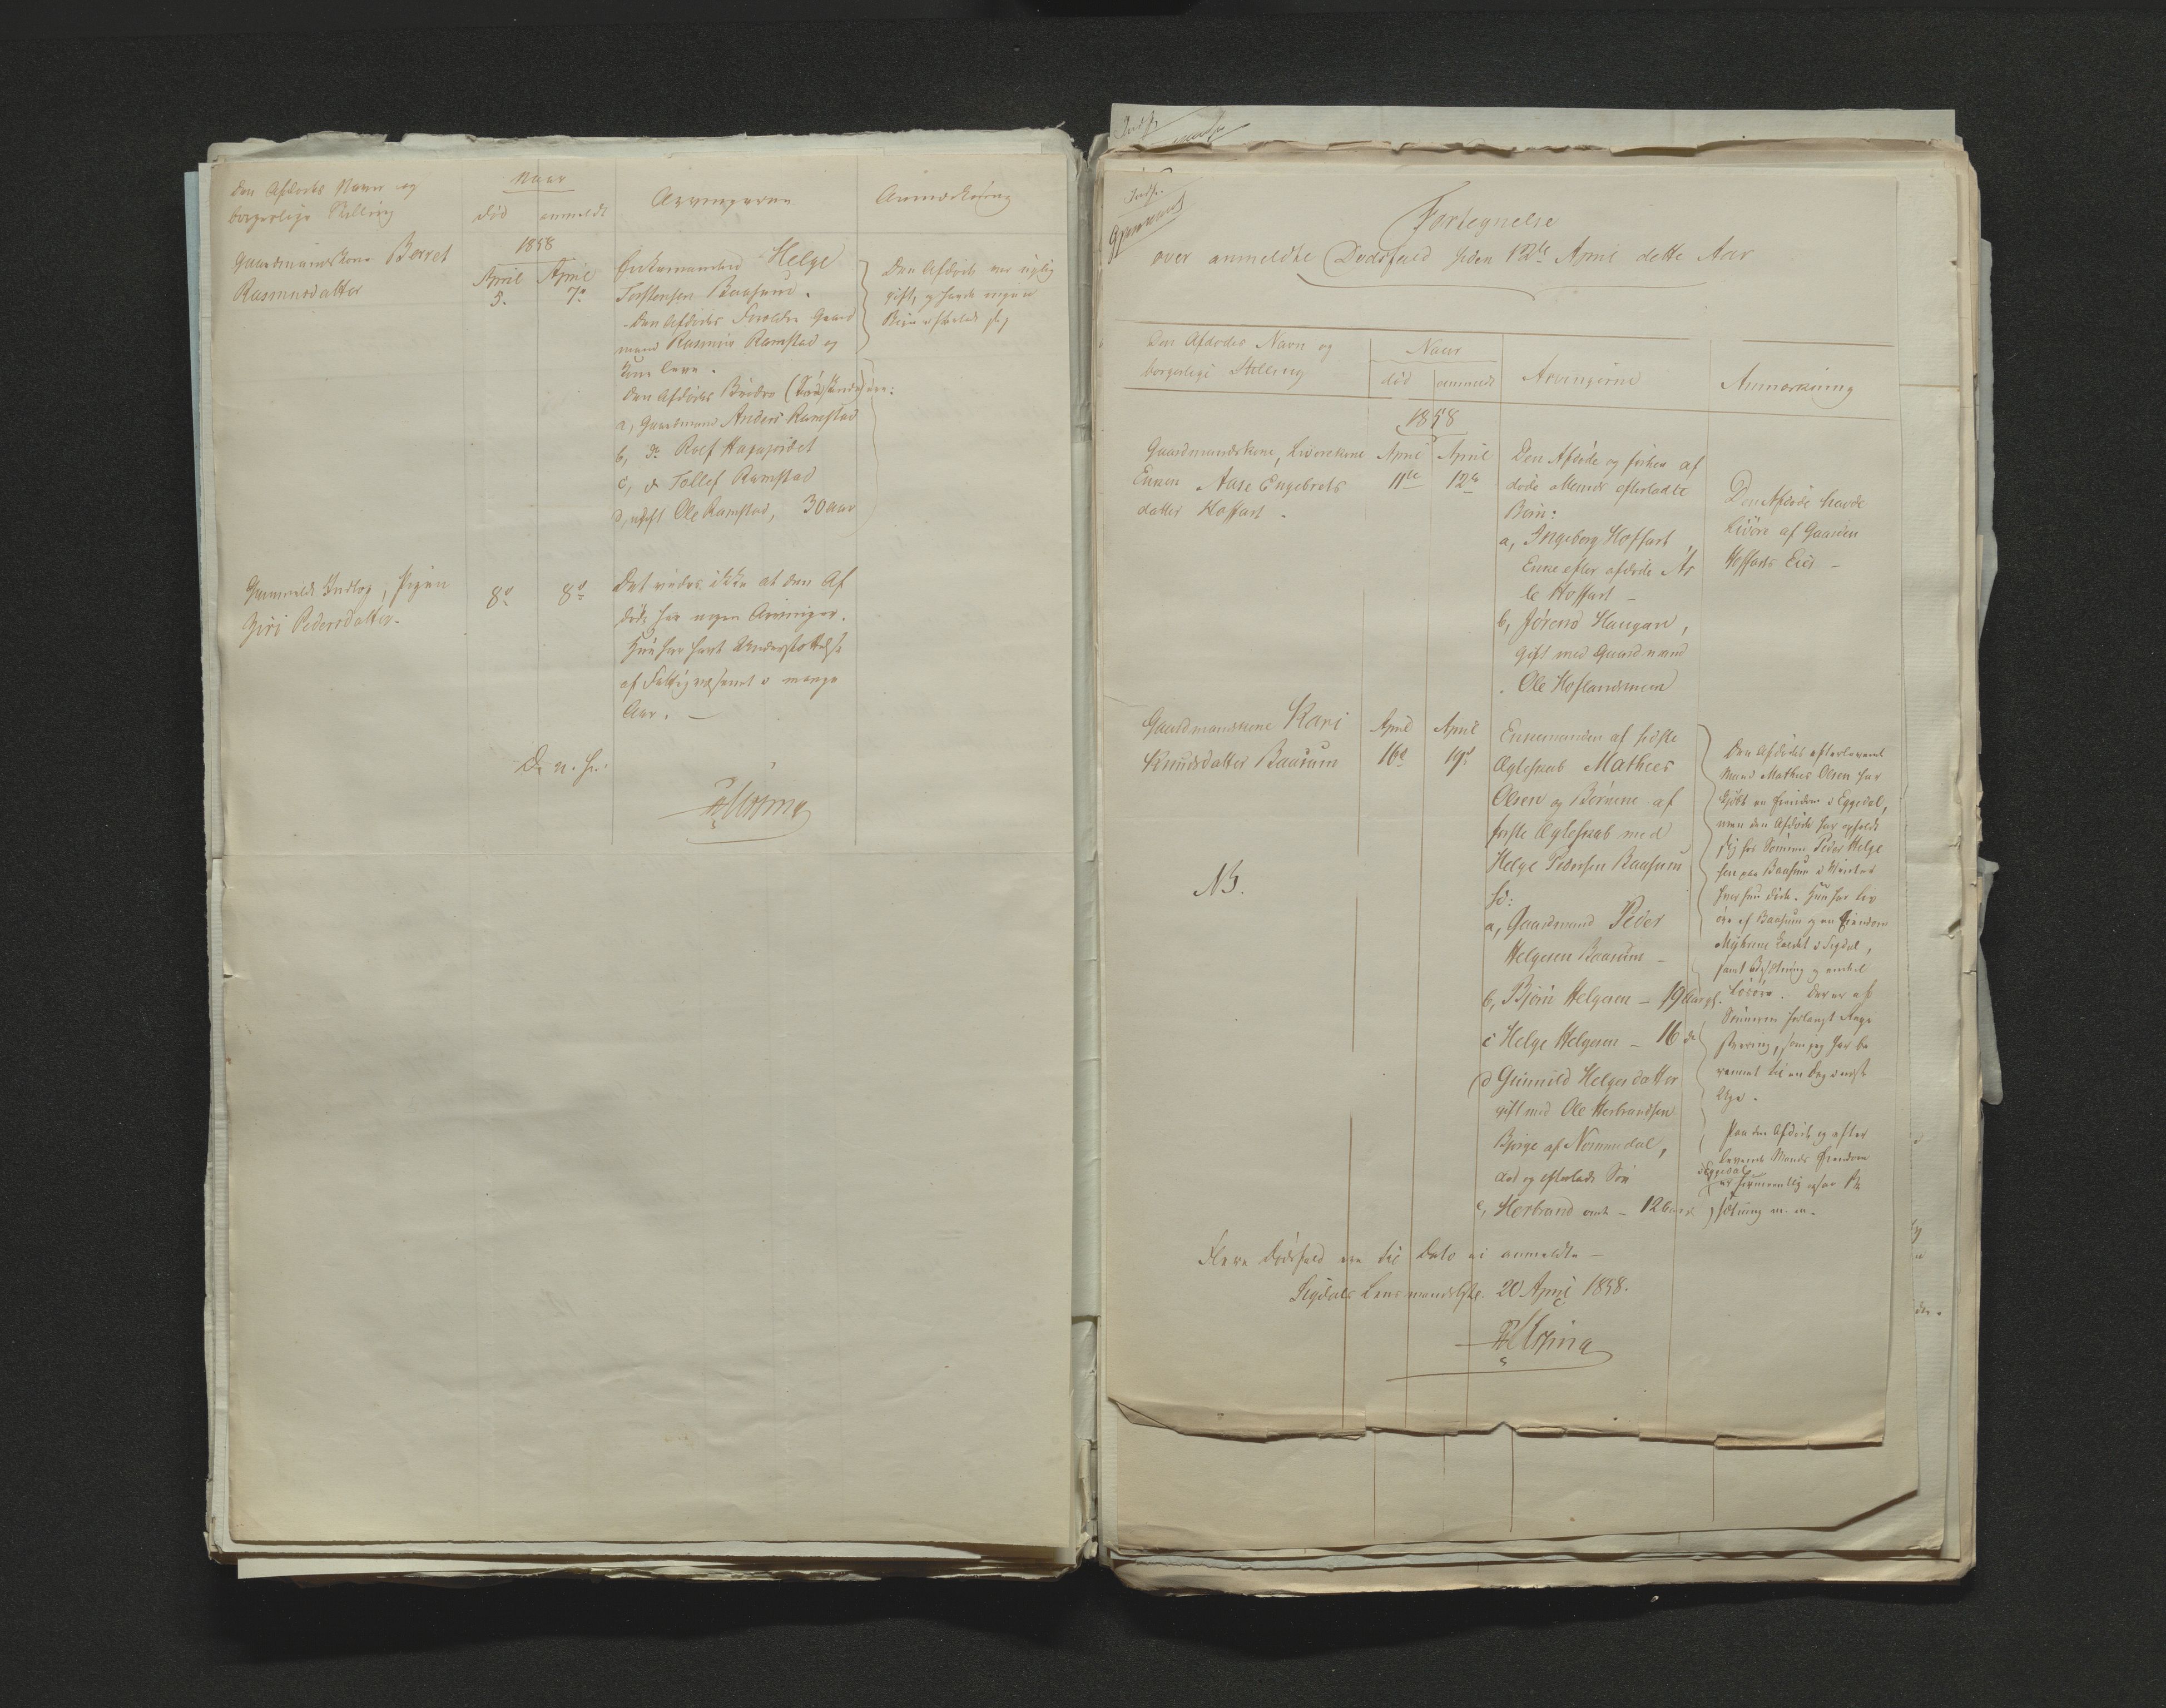 Den Afdødes Navn og
borgerlige Stilling
Naar
død
anmeldt
Arvingerne
Anmærkning
1858
Gaardmandskone Berret
Rasmusdatter
April
5.
April
7de
Enkemanden Helge
Torstensen Baasum.
Den Afdødes Forældre Gaard
mand Rasmus Ramstad og
Kone leve.
Den Afdødes Brødre (Søskende) ere:
a, Gaardmand Anders Ramstad
b, do Rolf
c, do Tollef Ramstad
d, ugift Ole Ramstad, 30 aar
Den Afdøde var nylig
gift, og havde ingen
Børn efterladt sig
Gunnvalds Indlog, Pigen
Giri Pedersdatter.
8de
8de
Det vides ikke at den Af
døde har nogen Arvinger.
Hun har havt Understøttelse
af Fattigvæsenet i mange
Aar. —
D. u. s.
Indf.
Gjenpart
Fortegnelse
over anmeldte Dødsfald siden 12te April dette Aar
Den Afdødes Navn og
borgerlige Stilling
Naar
død
anmeldt
Arvingerne
Anmærkning
1858
Gaardmandskone, Livørekone
Enken Aase Engebrets
datter Hoffart.
April
11te
April
12te
Den Afdøde og forhen af
døde allerede efterladte
Børn:
a, Ingeborg Hoffart,
Enke efter afdøde Ar
le Hoffart —
b, Jørend Haugan,
gift med Gaardmand
Ole Hoflandsmoen
Den Afdøde havde
Livøre af Gaarden
Hoffarts Eier —
Gaardmandskone Kari
Knudsdatter Baasum
April
16de
April
19de
NB.
Enkemanden af sidste
Ægteskab Mathees
Olsen og Børnene af
første Ægteskab med
Helge Pedersen Baasum
so:
a, Gaardmand Peder
Helgesen Baasum —
b, Bjørn Helgesen — 19 Aar gl.
c Helge Helgesen — 16 do
d Gunnild Helgesdatter
gift med Ole Herbrandsen
Bjørge af Nommedal,
død og efterladt Søn
e, Herbrand omt. — 12 Aar
Den Afdødes efterlevende
Mand Mathees Olsen har
kjøbt en Eiendom i Eggedal,
men den Afdøde har opholdt
sig hos Sønnen Peder Helge
sen paa Baasum i Vinter
hvor hun døde. Hun har Liv
øre af Baasum og en Eiendom
kaldet i Sigdal,
samt Besætning og endeel
Løsøre. Der er af
Sønnen forlangt Regi
strering, som jeg har be
rammet til en Dag i næste
Uge.
Paa den Afdøde og efter
levende Mands Eiendom
i Eggedal
er formeentlig ogsaa Be
sætning m. m.
Flere Dødsfald ere til Dato ei anmeldte —
Sigdals Lensmandsbst. 20 April 1858.